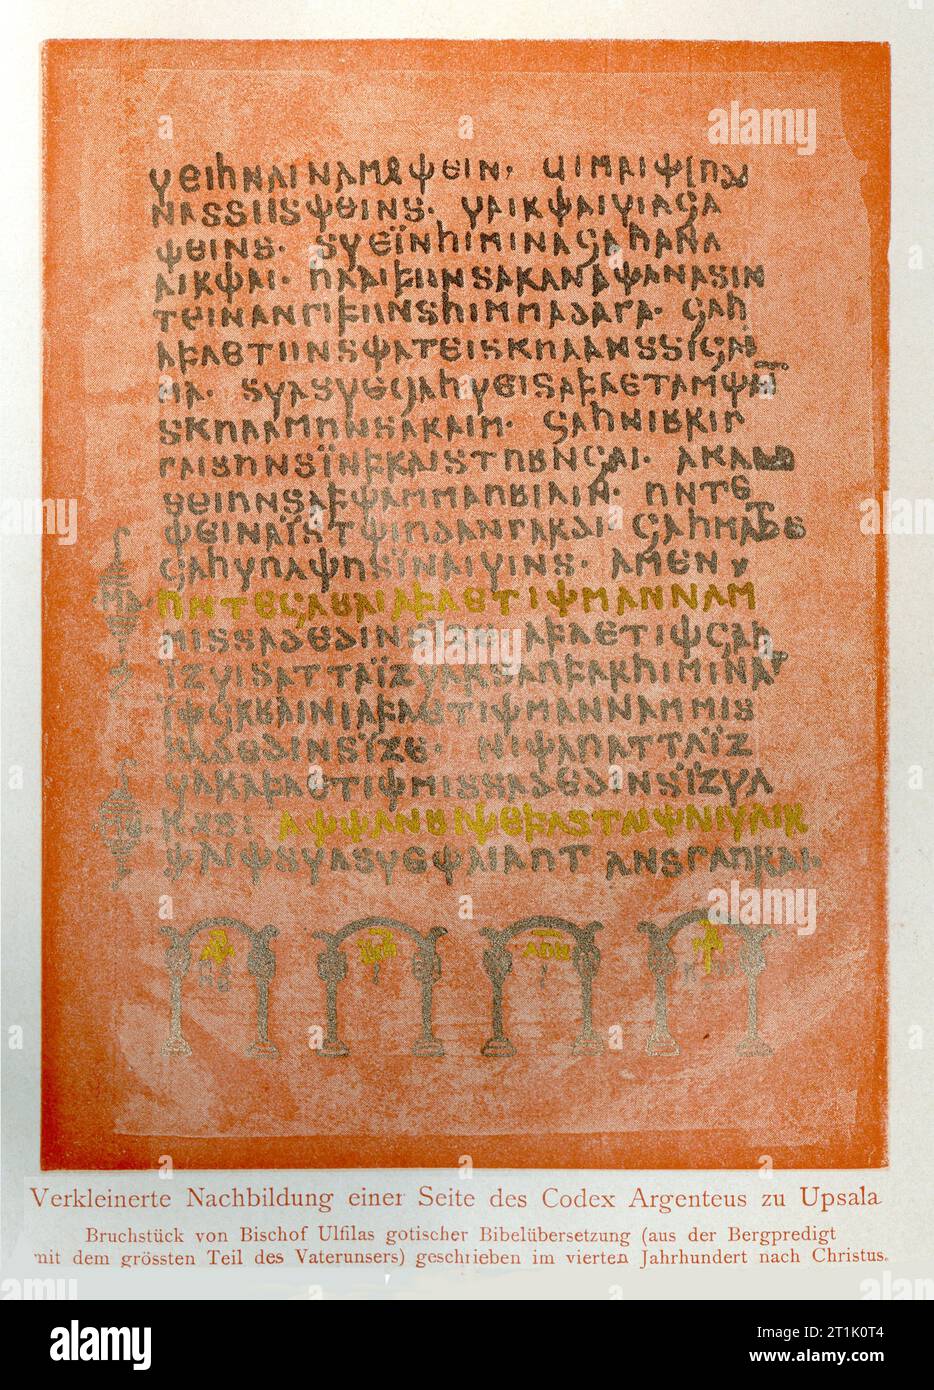 𐍅𐌴𐌹𐌷𐌽𐌰𐌹𐌽𐌰𐌼𐍉𐌸𐌴𐌹𐌽· 𐌵𐌹𐌼𐌰𐌹𐌸𐌹𐌿𐌳𐌹
𐌽𐌰𐍃𐍃𐌿𐍃𐌸𐌴𐌹𐌽𐍃· 𐍅𐌰𐌹𐍂𐌸𐌰𐌹𐍅𐌹𐌻𐌾𐌰
𐌸𐌴𐌹𐌽𐍃· 𐍃𐍅𐌴𐌹̈𐌽𐌷𐌹𐌼𐌹𐌽𐌰𐌾𐌰𐌷𐌰𐌽𐌰
𐌰𐌹𐍂𐌸𐌰𐌹· 𐌷𐌻𐌰𐌹𐍆𐌿𐌽𐍃𐌰𐍂𐌰𐌽𐌰𐌸𐌰𐌽𐌰𐍃𐌹𐌽
𐍄𐌴𐌹𐌽𐌰𐌽𐌲𐌹𐍆𐌿𐌽𐍃𐌷𐌹𐌼𐌼𐌰𐌳𐌰𐌲𐌰· 𐌾𐌰𐌷
𐌰𐍆𐌻𐌴𐍄𐌿𐌽𐍃𐌸𐌰𐍄𐌴𐌹𐍃𐌺𐌿𐌻𐌰𐌽𐍃𐍃𐌹𐌾𐌰𐌹
𐌼𐌰· 𐍃𐍅𐌰𐍃𐍅𐌴𐌾𐌰𐌷𐍅𐌴𐌹𐍃𐌰𐍆𐌻𐌴𐍄𐌰𐌼𐌸𐌰𐌹̅
𐍃𐌺𐌿𐌻𐌰𐌼𐌿𐌽𐍃𐌰𐍂𐌰𐌹𐌼· 𐌾𐌰𐌷𐌽𐌹𐌱𐍂𐌹𐌲
𐌲𐌰𐌹𐍃𐌿𐌽𐍃𐌹̈𐌽𐍆𐍂𐌰𐌹𐍃𐍄𐌿𐌱𐌽𐌾𐌰𐌹· 𐌰𐌺𐌻𐌰𐌿
𐍃𐌴𐌹𐌿𐌽𐍃𐌰𐍆𐌸𐌰𐌼𐌼𐌰𐌿𐌱𐌹𐌻𐌹𐌽· 𐌿𐌽𐍄𐌴
𐌸𐌴𐌹𐌽𐌰𐌹̈𐍃𐍄𐌸𐌹𐌿𐌳𐌰𐌽𐌲𐌰𐍂𐌳𐌹 𐌾𐌰𐌷𐌼𐌰𐌷𐍄𐍃
𐌾𐌰𐌷𐍅𐌿𐌻𐌸𐌿𐍃𐌹̈𐌽𐌰𐌹𐍅𐌹𐌽𐍃· 𐌰𐌼𐌴𐌽
𐌿𐌽𐍄𐌴𐌾𐌰𐌱𐌰𐌹𐌰𐍆𐌻𐌴𐍄𐌹𐌸𐌼𐌰𐌽𐌽𐌰𐌼
𐌼𐌹𐍃𐍃𐌰𐌳𐌴𐌳𐌹𐌽𐍃𐌹̈𐌶𐌴· 𐌰𐍆𐌻𐌴𐍄𐌹𐌸𐌾𐌰𐌷
𐌹̈𐌶𐍅𐌹𐍃𐌰𐍄𐍄𐌰𐌹̈𐌶𐍅𐌰𐍂𐍃𐌰𐌿𐍆𐌰𐍂𐌷𐌹𐌼𐌹𐌽𐌰̅
𐌹̈𐌸𐌾𐌰𐌱𐌰𐌹𐌽𐌹𐌰𐍆𐌻𐌴𐍄𐌹𐌸𐌼𐌰𐌽𐌽𐌰𐌼𐌼𐌹𐍃
𐍃𐌰𐌳𐌴𐌳𐌹𐌽𐍃𐌹̈𐌶𐌴· 𐌽𐌹𐌸𐌰𐌿𐌰𐍄𐍄𐌰𐌹̈𐌶
𐍅𐌰𐍂𐌰𐍆𐌻𐌴𐍄𐌹𐌸𐌼𐌹𐍃𐍃𐌰𐌳𐌴𐌳𐌹𐌽𐍃𐌹̈𐌶𐍅𐌰
𐍂𐍉𐍃: 𐌰𐌸𐌸𐌰𐌽𐌱𐌹𐌸𐌴𐍆𐌰𐍃𐍄𐌰𐌹𐌸𐌽𐌹𐍅𐌰𐌹𐍂
𐌸𐌰𐌹𐌸𐍃𐍅𐌰𐍃𐍅𐌴𐌸𐌰𐌹𐌻𐌹𐌿𐍄𐌰𐌽𐍃𐌲𐌰𐌿𐍂𐌰𐌹·
Verkleinerte Nachbildung einer Seite des Codex Argenteus zu Upsala
Bruchstück von Bischof Ulfilas gotischer Bibelübersetzung (aus der Bergpredigt
mit dem grössten Teil des Vaterunsers) geschrieben im vierten Jahrhundert nach Christus.
alamy
Image ID: 2T1K0T4
www.alamy.com